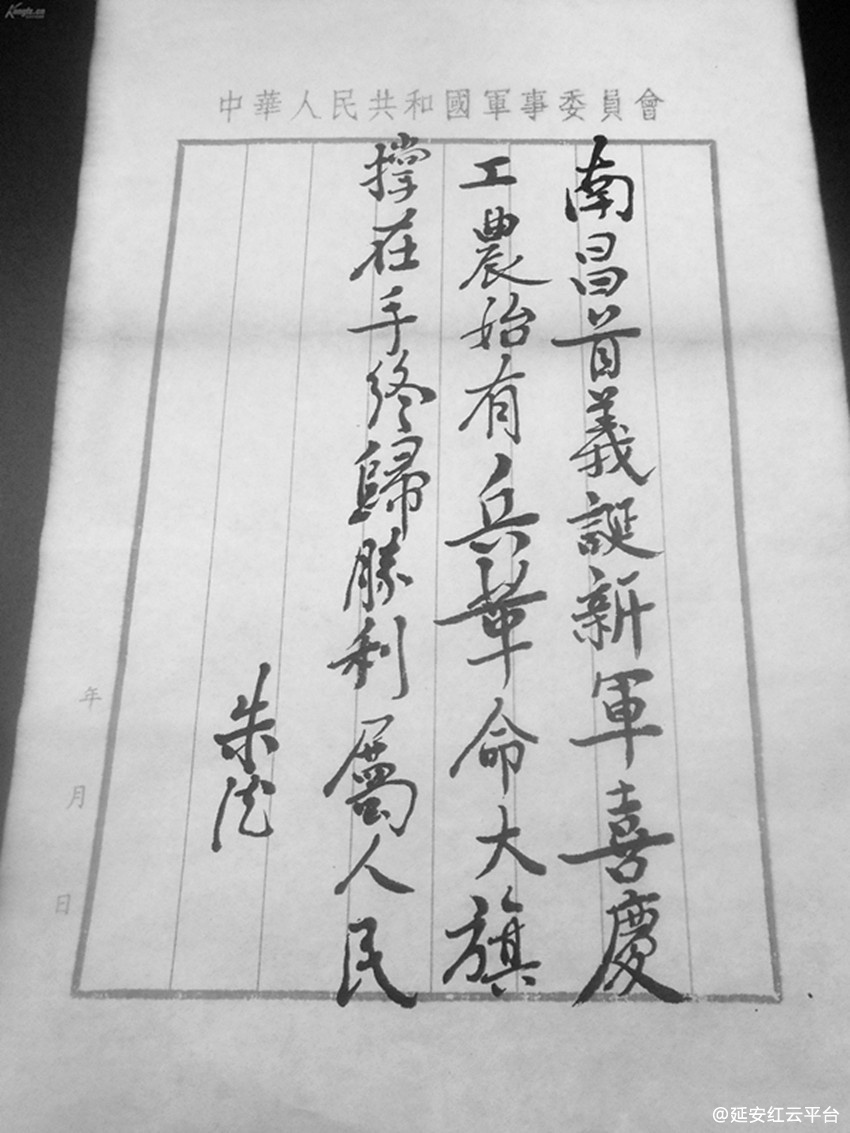 Kongfz.cn
中華人民共和國軍事委員會
南昌首義誕新軍喜慶
工農始有兵革命大旗
撑在手终歸勝利屬人民
朱德
年
月
日
@延安红云平台